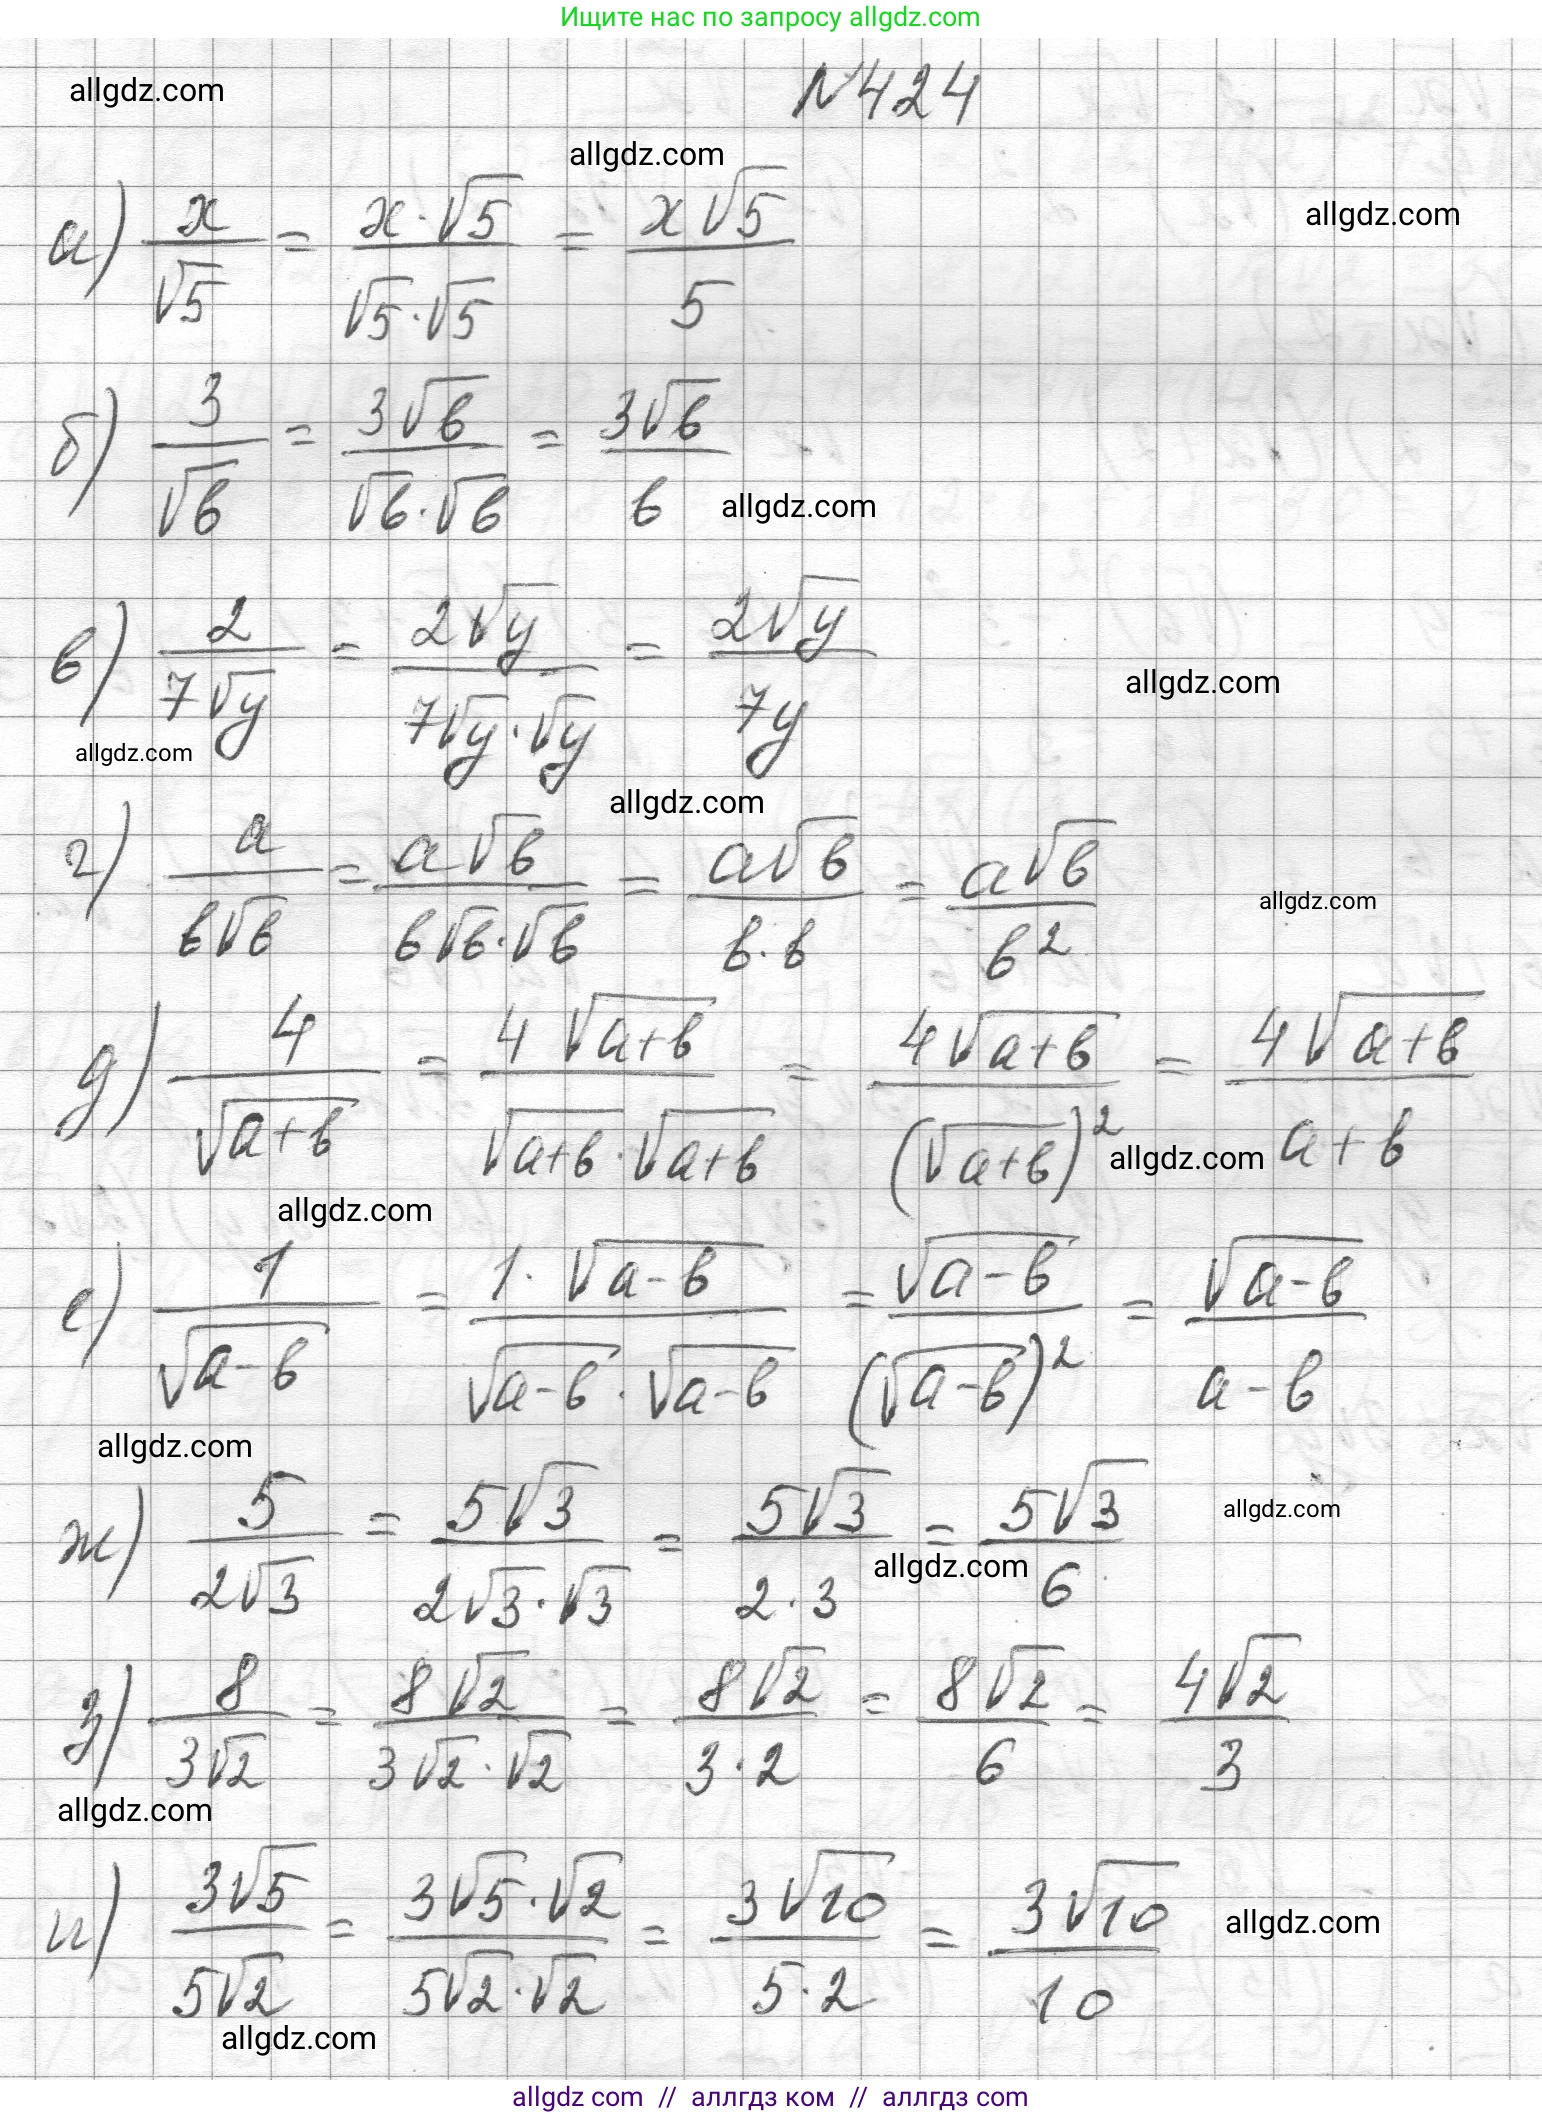 Ищите нас по запросу allgdz.com
allgdz.com
№424
allgdz.com
allgdz.com
а) x/√5 = x·√5/√5·√5 = x√5/5
б) 3/√b = 3√b/√b·√b = 3√b/b
allgdz.com
в) 2/7√y = 2√y/7√y·√y = 2√y/7y
allgdz.com
allgdz.com
allgdz.com
г) a/b√b = a√b/b√b·√b = a√b/b·b = a√b/b²
allgdz.com
д) 4/√(a+b) = 4√(a+b)/√(a+b)·√(a+b) = 4√(a+b)/(√(a+b))² = 4√(a+b)/a+b
allgdz.com
allgdz.com
е) 1/√(a-b) = 1·√(a-b)/√(a-b)·√(a-b) = √(a-b)/(√(a-b))² = √(a-b)/a-b
allgdz.com
ж) 5/2√3 = 5√3/2√3·√3 = 5√3/2·3 = 5√3/6
allgdz.com
allgdz.com
з) 8/3√2 = 8√2/3√2·√2 = 8√2/3·2 = 8√2/6 = 4√2/3
allgdz.com
и) 3√5/5√2 = 3√5·√2/5√2·√2 = 3√10/5·2 = 3√10/10
allgdz.com
allgdz.com
allgdz com // аллгдз ком // аллгдз com